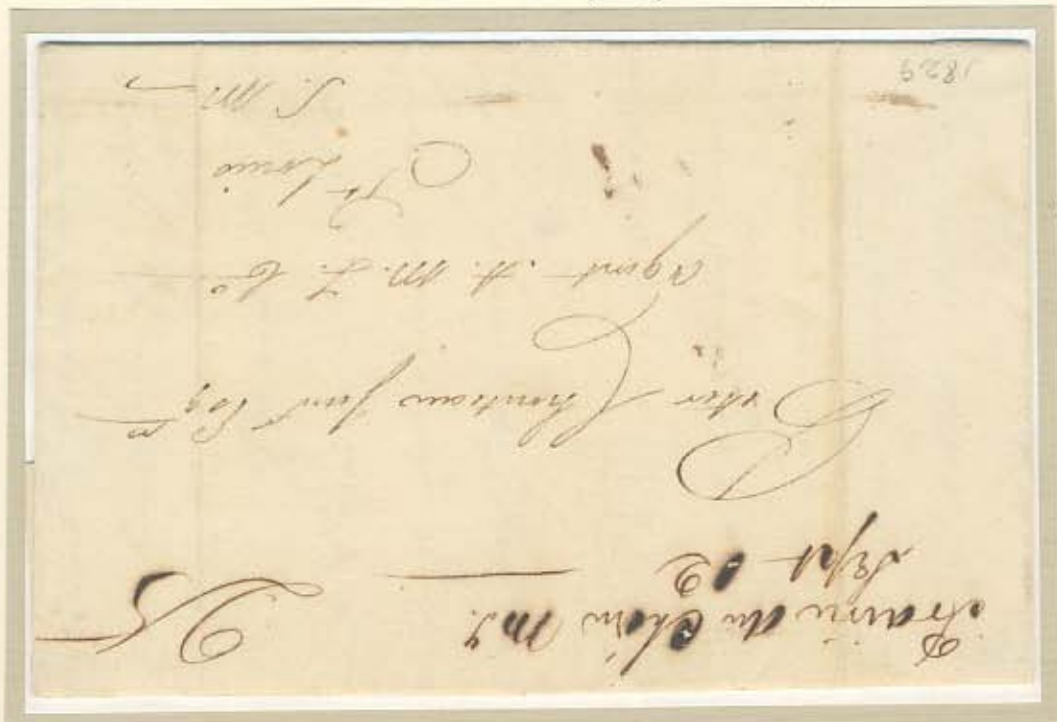 Prairie du Chien M.T. 25
Sept
Peter Chouteau Junr Esqr
Agent A. M. F. Co
St Louis
1829